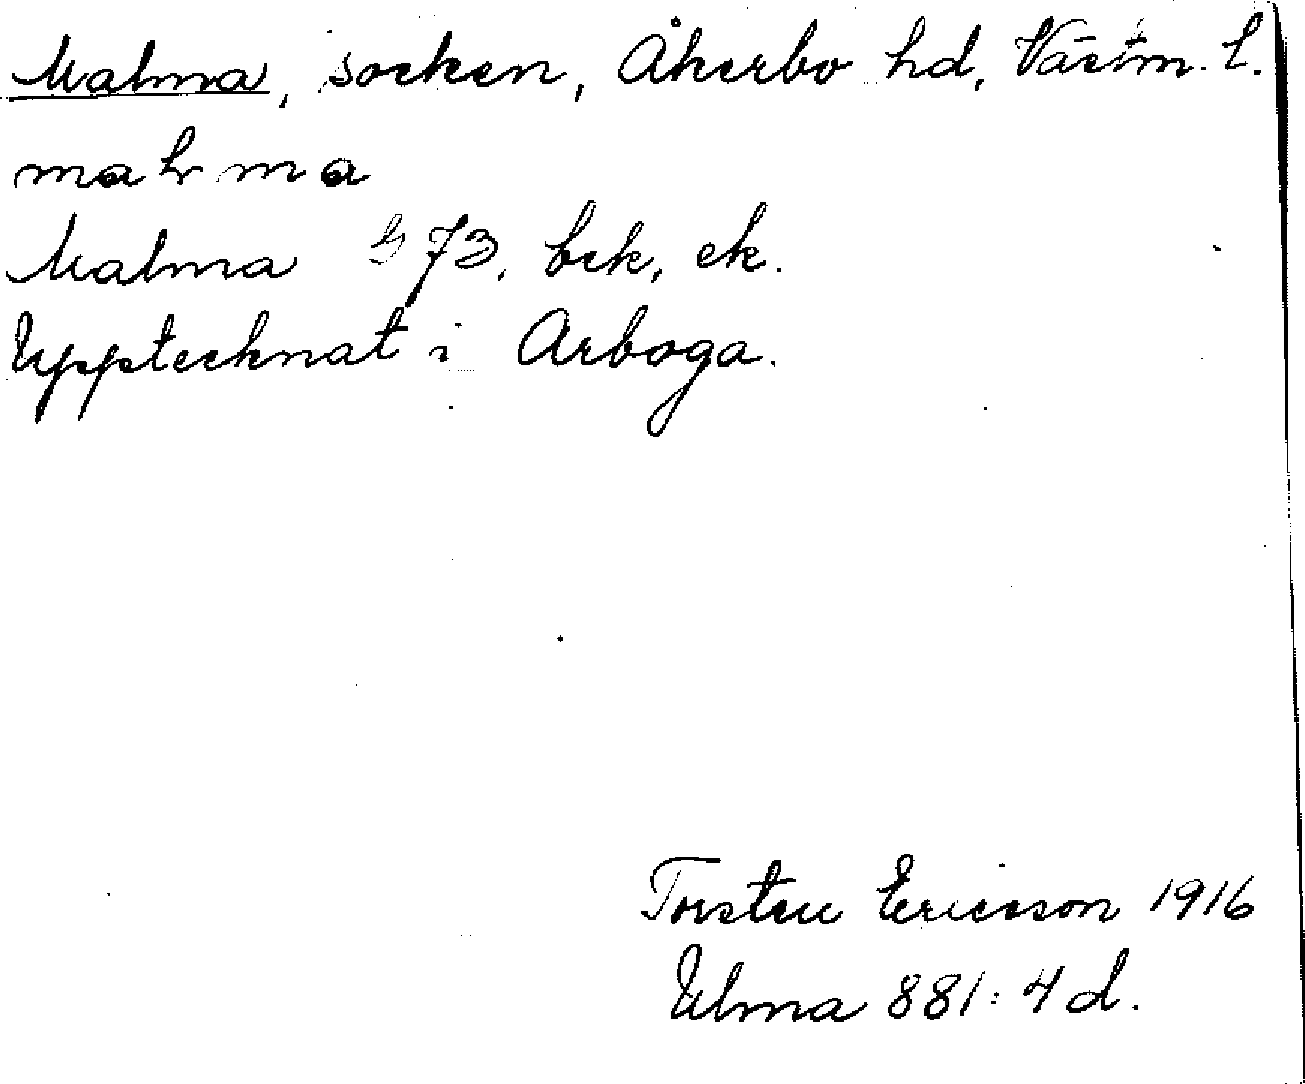 Malma, socken, Åkerbo hd, Västm. l.
malma
Malma § 73, bek, ek.
Upptecknat i Arboga.
Torsten Ericsson 1916
Ulma 881:4 d.